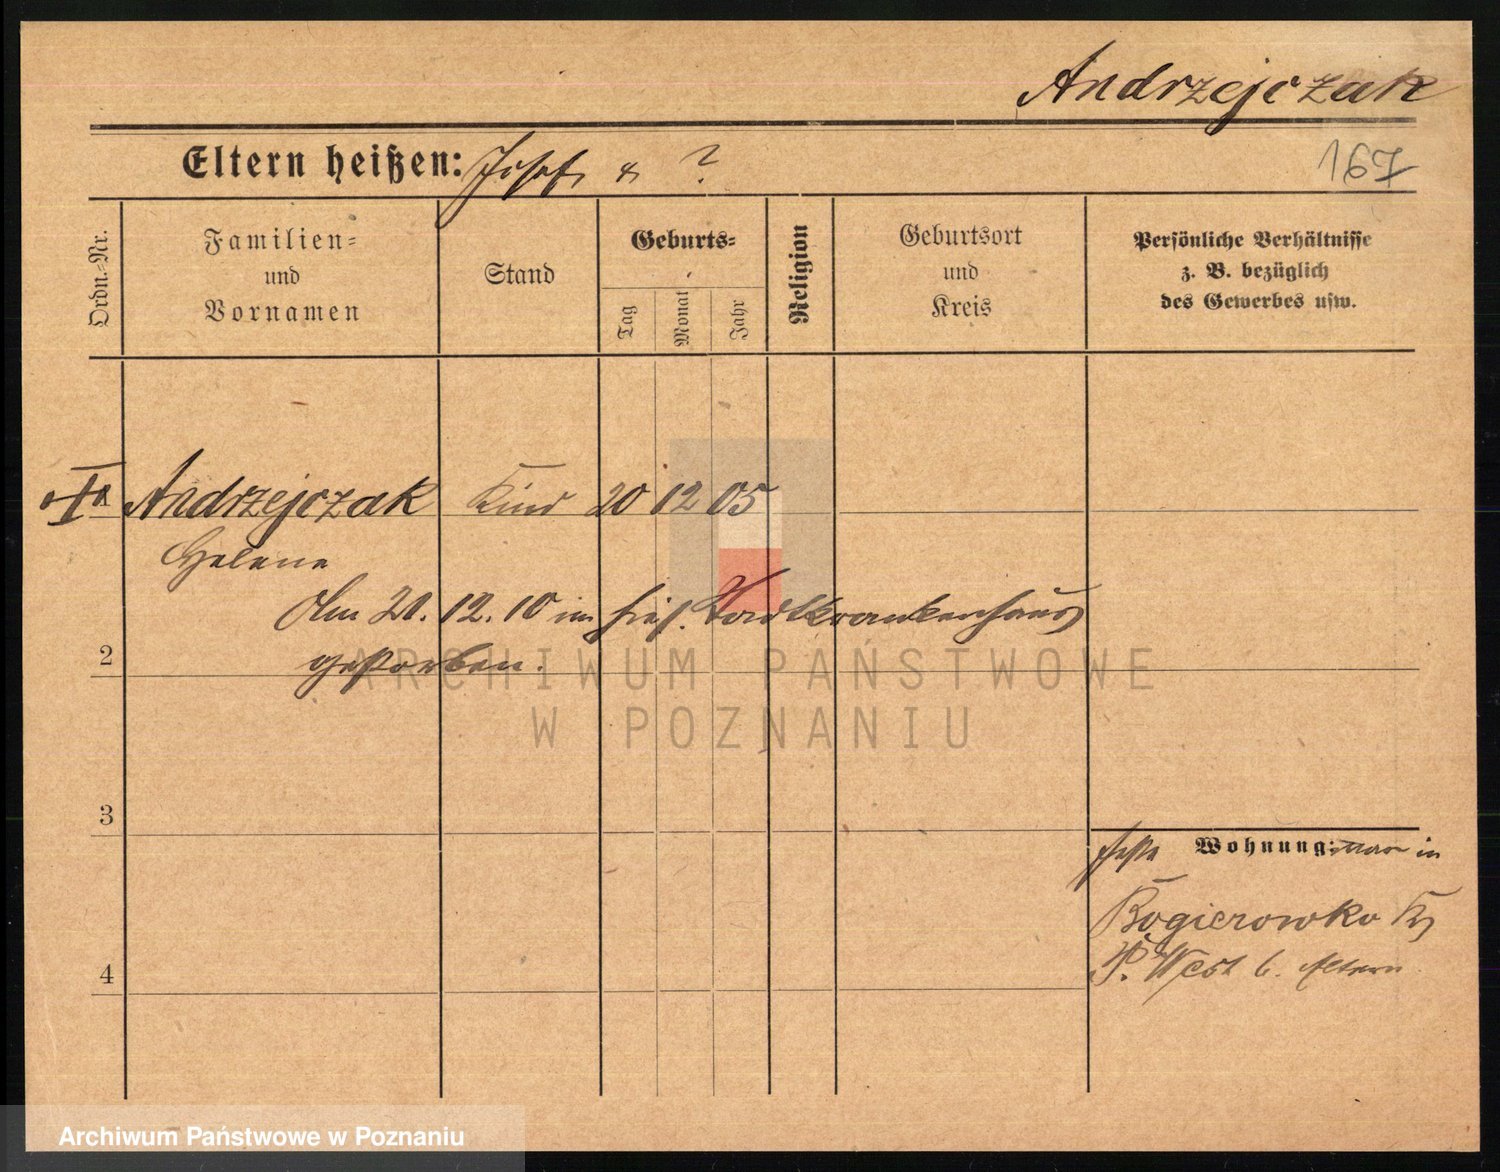 Andrzejczak
Eltern heißen: Josef u ?
167
Ordn.-Nr.
Familien-
und
Vornamen
Stand
Geburts-
Tag
Monat
Jahr
Religion
Geburtsort
und
Kreis
Persönliche Verhältnisse
z. B. bezüglich
des Gewerbes usw.
1 Andrzejczak Kind 20 12 05
Helene
Am 21. 12. 10 im hies. Stadtkrankenhaus
2 gestorben.
ARCHIWUM PAŃSTWOWE
W POZNANIU
3
feste Wohnung: war in
Rogierowko Kr
P. West b. Eltern
4
Archiwum Państwowe w Poznaniu